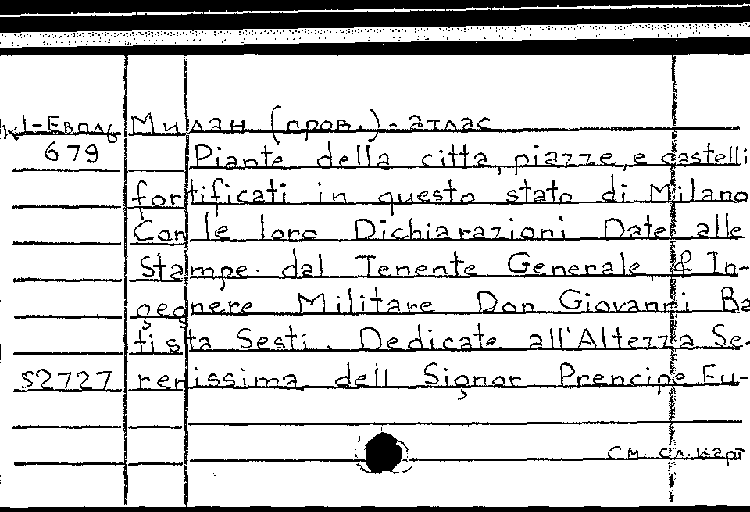 К 1-Европ Милан (пров.) - атлас
679 Piante della citta, piazze, e castelli
fortificati in questo stato di Milano
Con le loro Dichiarazioni Date alle
Stampe dal Tenente Generale & In-
gegnere Militare Don Giovanni Ba
tista Sesti. Dedicate all'Altezza Se-
S2727 renissima dell Signor Prencipe Eu-
См. сл. карт